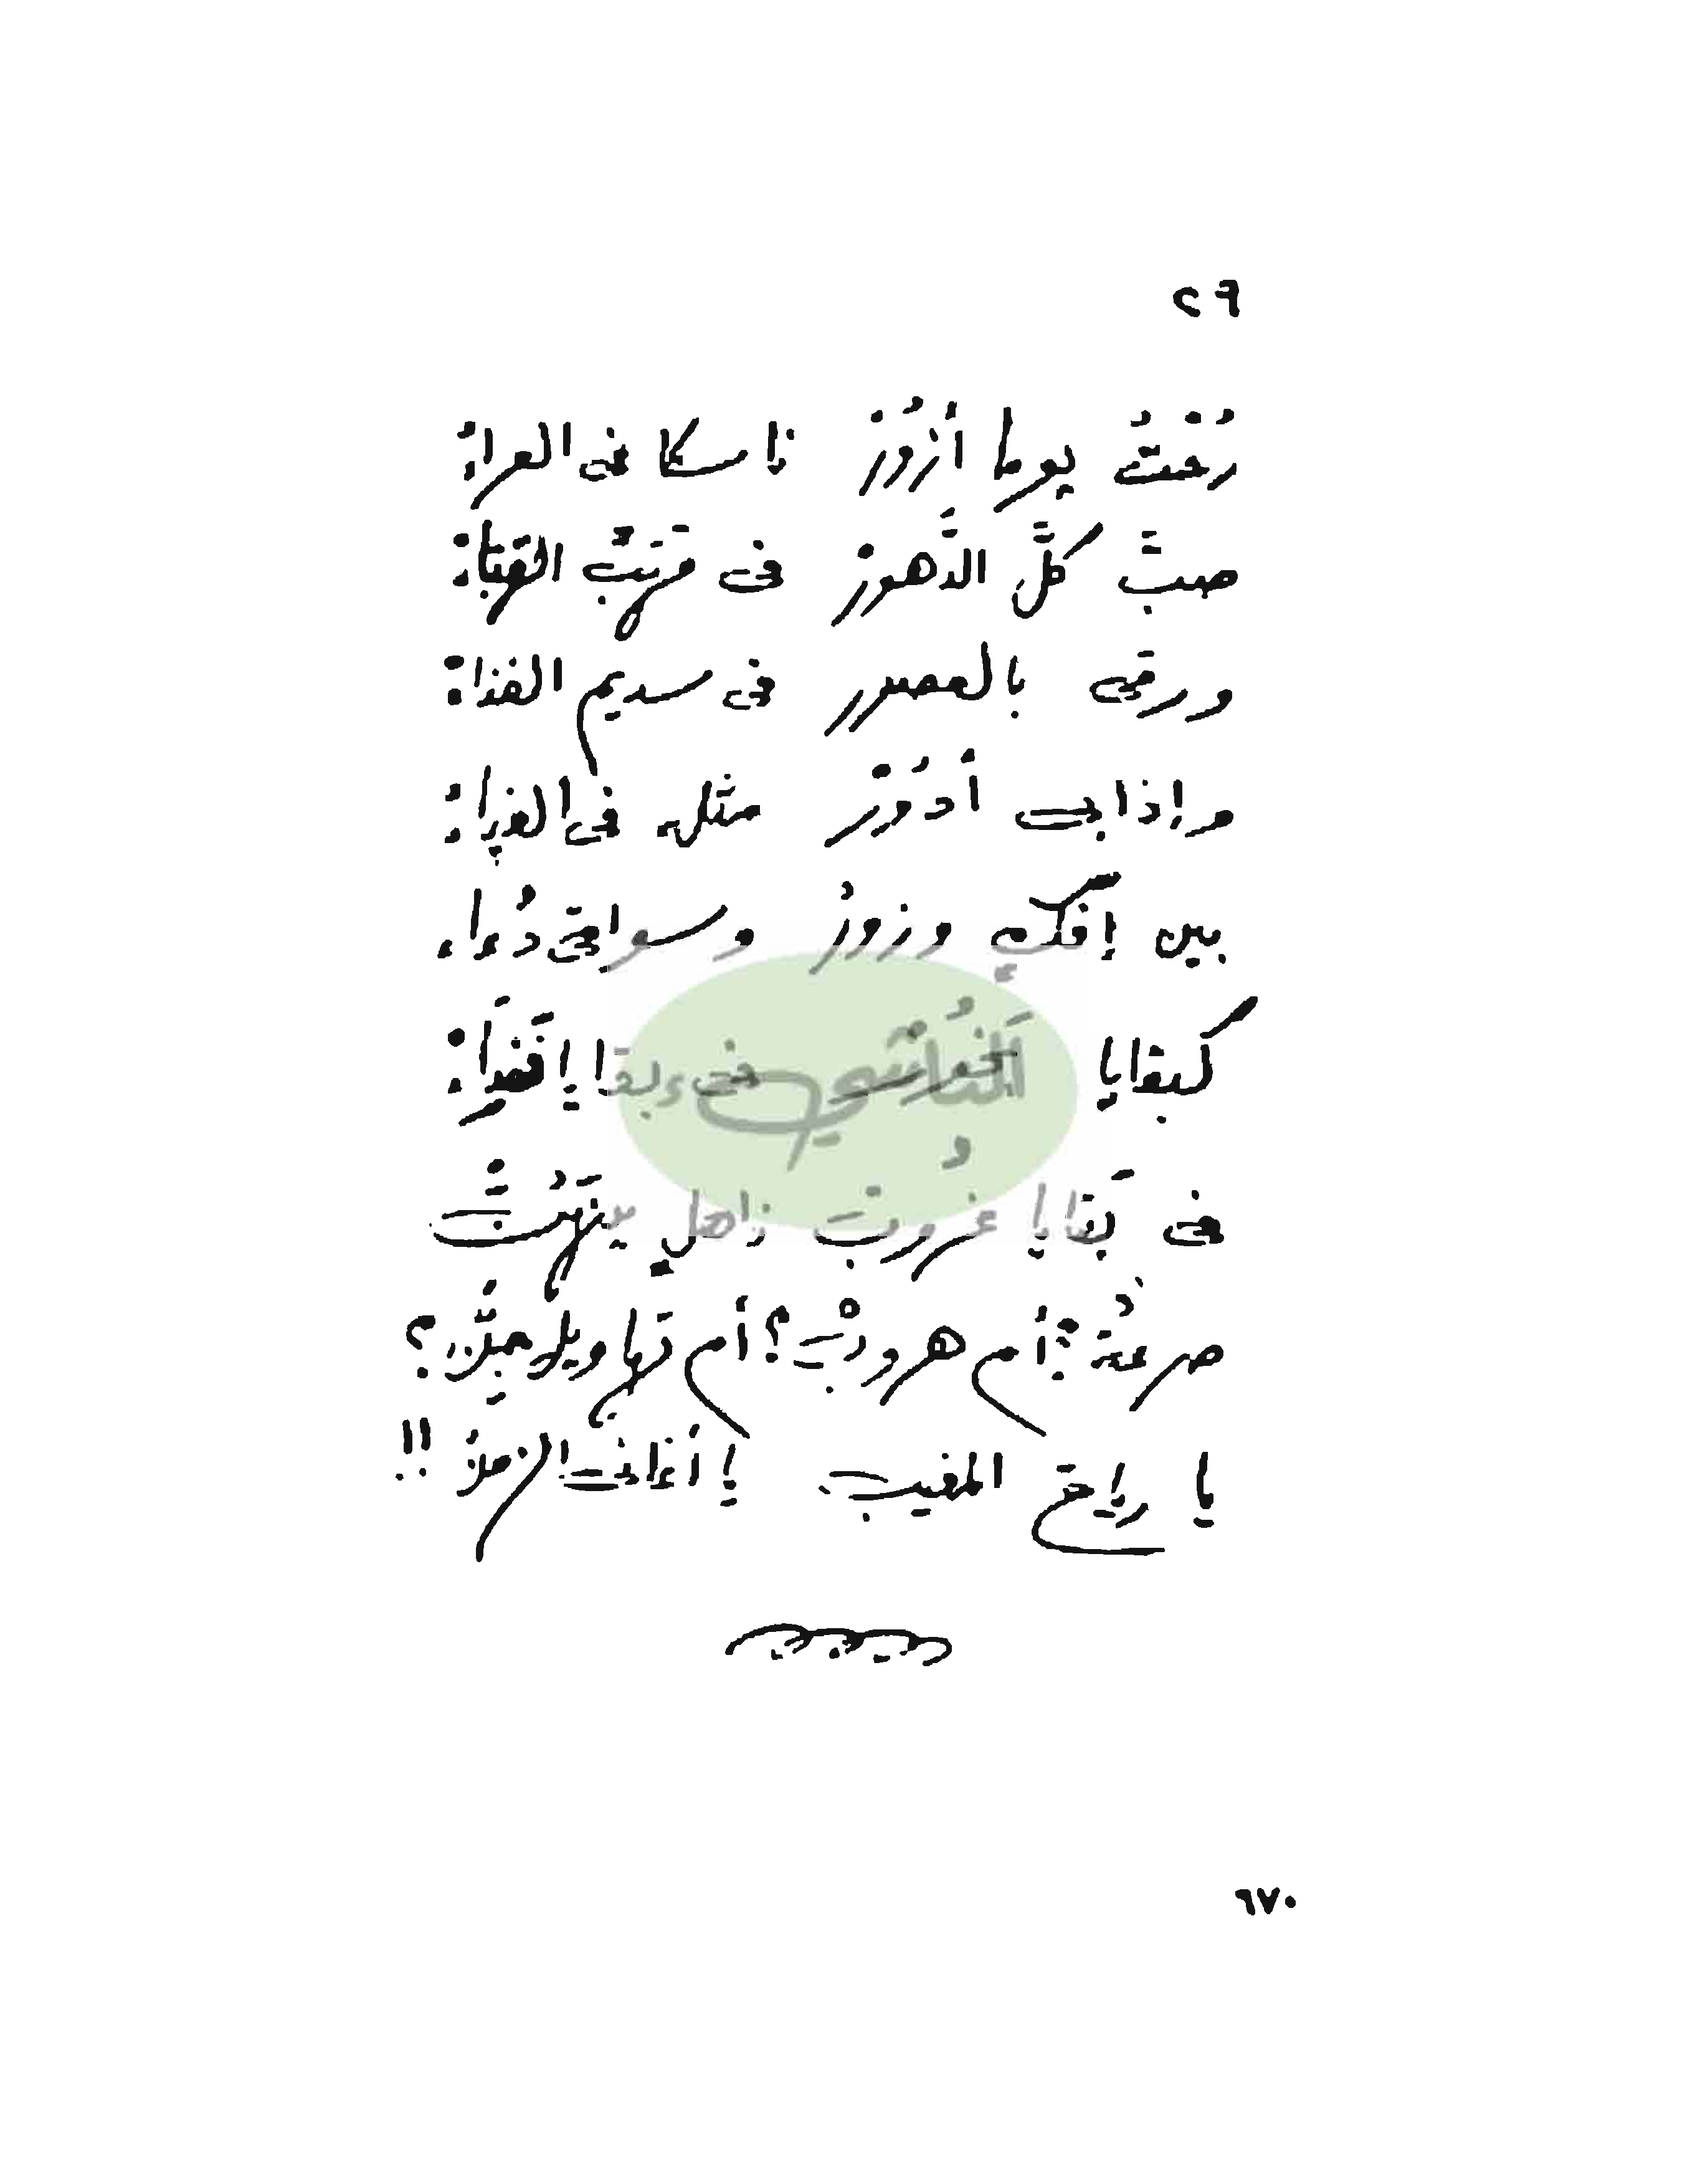 ٢٩
رُحْتُ يوما أزُورْ ناسكا فى العراءْ
صبَّ كلَّ الدُّهورْ فى قِرَبِ الهَبَاءْ
ورقى بالعصور فى سديم الفناءْ
وإذا بى أدُورْ مثله فى الغباءْ
بين إفكٍ وزورْ وسواقى دُعاء
كبقايا فى بقايا إفَضَاءْ
فى بَقايا غروب ذاهلٍ ينتهبْ
صرعةٌ؟ أم هروبْ؟ أم تهاويل جنٍّ؟
يا رياح المغيب يا أغانى الزمن!!
المنارشي
٦٧٠